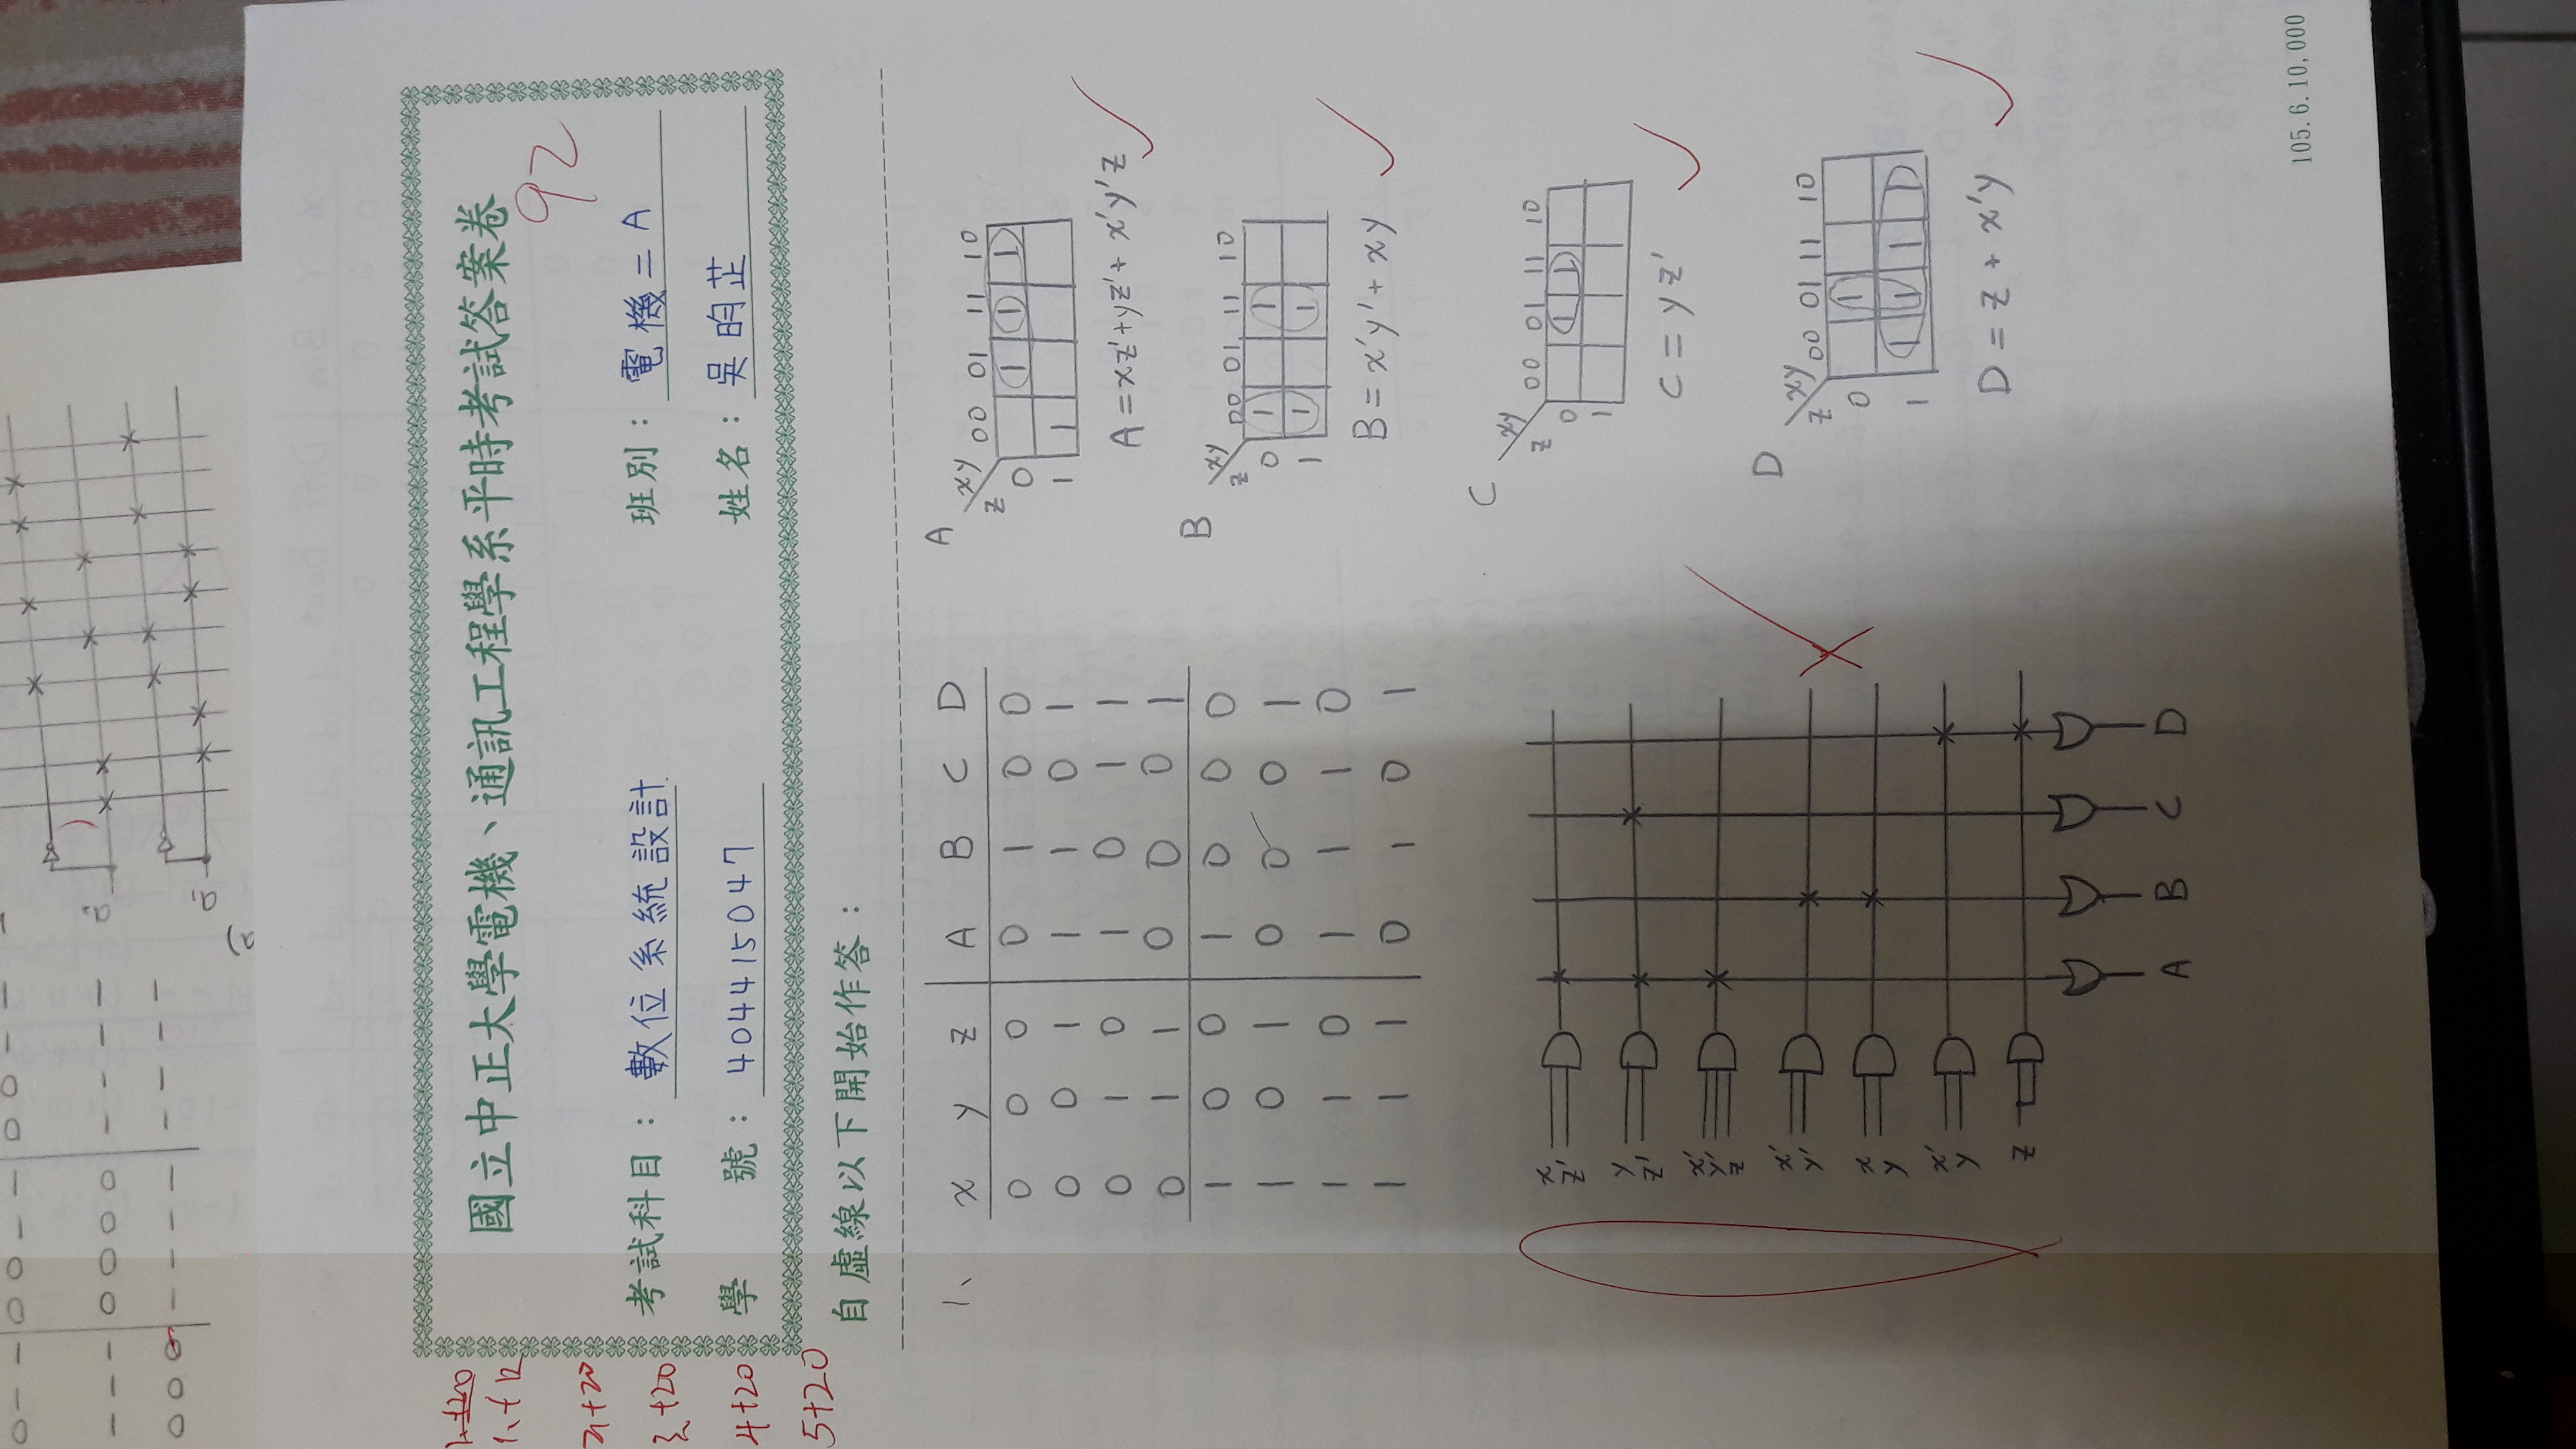 國立中正大學電機、通訊工程學系平時考試答案卷
92
考試科目：數位系統設計
班別：電機二A
學號：404415047
姓名：吳昀芷
1.+20
1.+12
2.+20
3.+20
4+20
5+20
自虛線以下開始作答：
1、
x y z A B C D
0 0 0 0 1 0 0
0 0 1 1 1 0 1
0 1 0 1 0 1 1
0 1 1 0 0 0 1
1 0 0 1 0 0 0
1 0 1 0 0 0 1
1 1 0 1 1 1 0
1 1 1 0 1 0 1
A
xy
z
00 01 11 10
0 1 1 1
1 1
A = xz' + yz' + x'y'z
B
xy
z
00 01 11 10
0 1 1
1 1 1
B = x'y' + xy
C
xy
z
00 01 11 10
0 1 1
1
C = yz'
D
xy
z
00 01 11 10
0 1
1 1 1 1 1
D = z + x'y
x
z'
y
z'
x'
y'
z
x'
y'
x
y
x'
y
z
A B C D
105.6.10,000